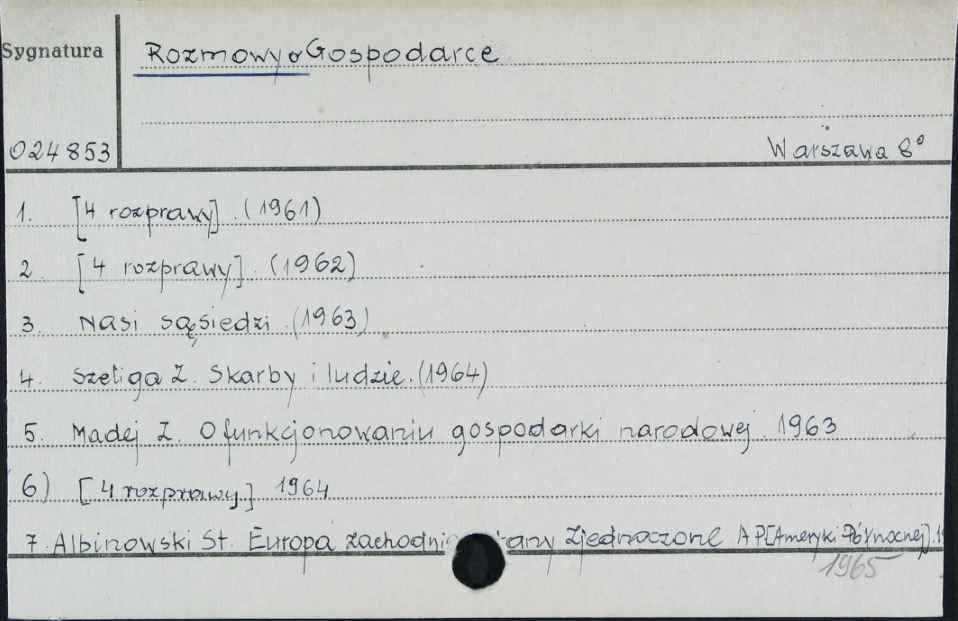 Sygnatura
Rozmowy o Gospodarce
024853
Warszawa 8°
1. [4 rozprawy]. (1961)
2. [4 rozprawy]. (1962)
3. Nasi sąsiedzi. (1963)
4. Szeliga Z. Skarby i ludzie. (1964)
5. Madej Z. O funkcjonowaniu gospodarki narodowej. 1963
6) [4 rozprawy.] 1964
7. Albinowski St. Europa Zjednoczone A P[Ameryki Północnej].
1965